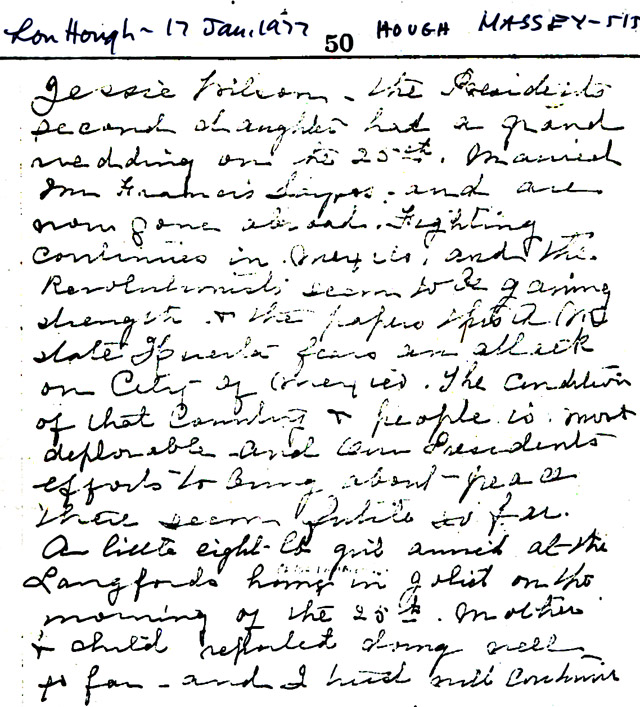 Lon Hough - 17 Jan. 1977 50 HOUGH MASSEY-515
Jessie Wilson - the Presidents
second daughter had a grand
wedding on the 25th. Married
Mr Francis and are
now gone abroad. Fighting
continues in Mexico, and the
Revolutionists seem to be gaining
strength & the papers
state Huerta fears an attack
on City of Mexico. The condition
of that Country & people is most
deplorable - and our Presidents
efforts to bring about - peace
there seem futile so far.
A little eight-lb girl arrived at the
Langfords home in Joliet on the
morning of the 25th. Mother
& child reported doing well
so far - and I trust will continue